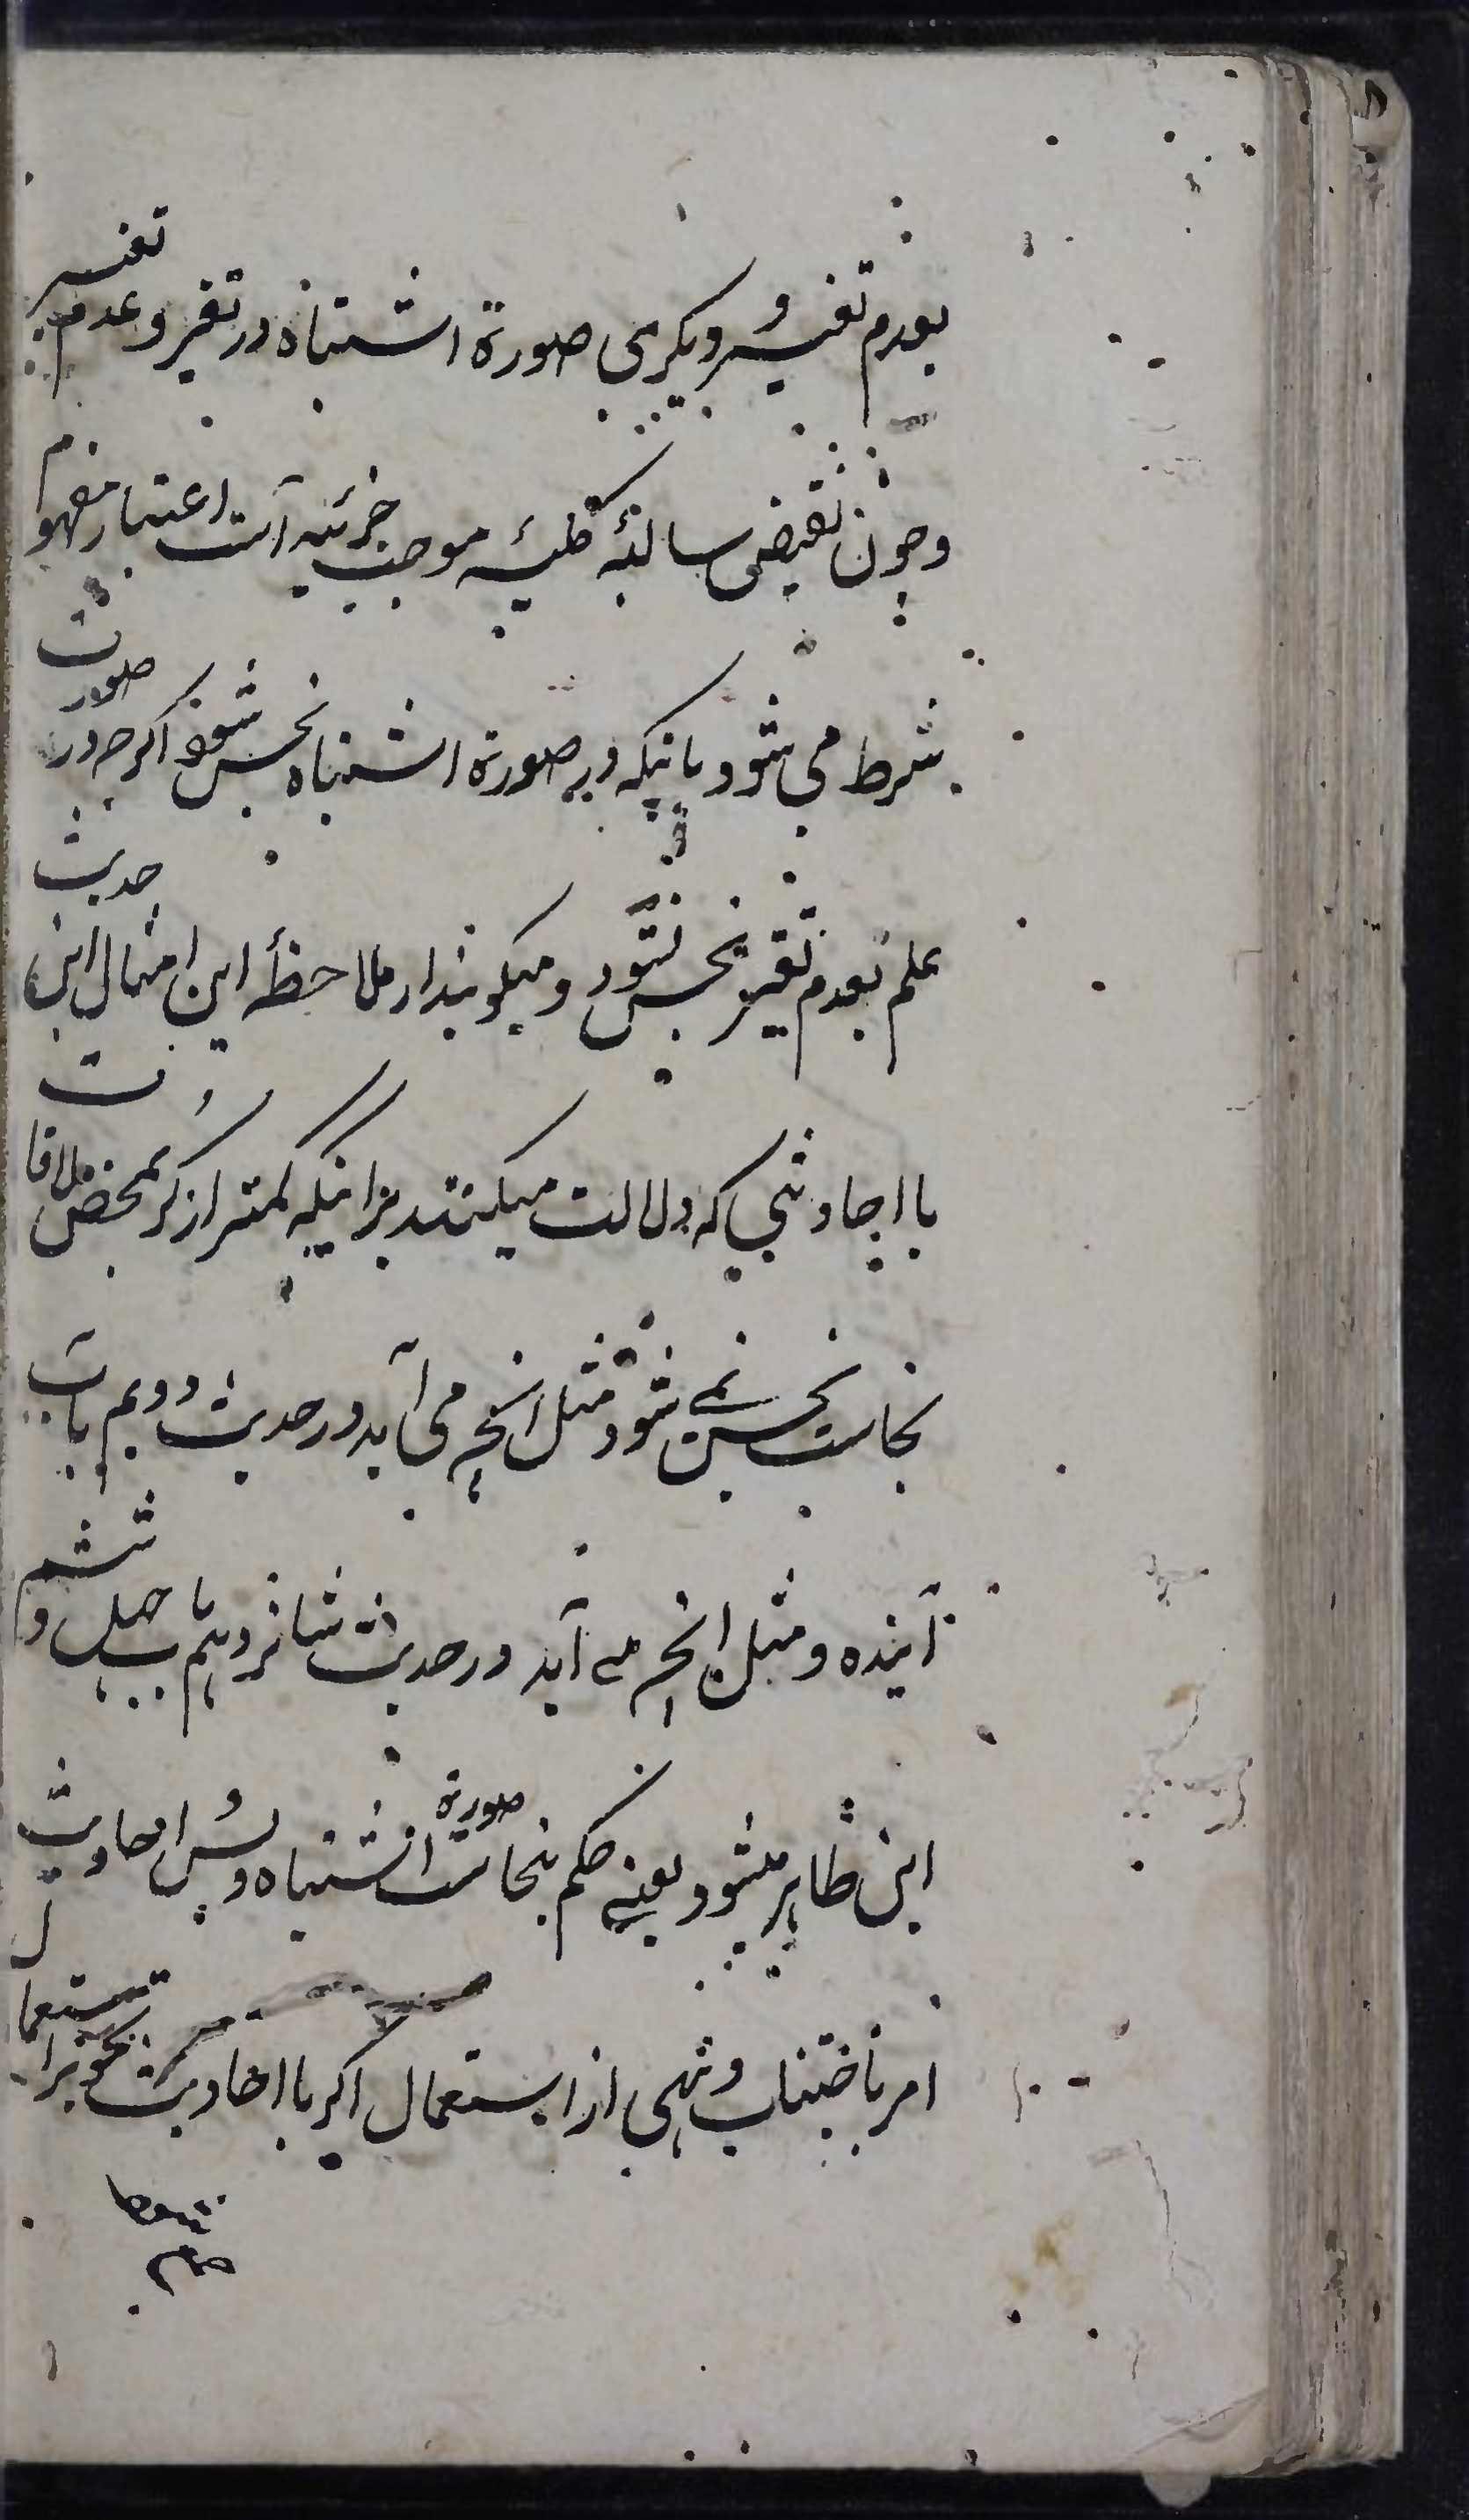 بعدم تغیر و دیگری صورة اشتباه در تغیر و عدم تغیر
و چون نقیض سالبۀ کلیه موجبۀ جزئیه است اعتبار مفهوم
شرط می شود باینکه در صورة اشتباه نجس شود اگرچه در صورت
علم بعدم تغیر نجس نشود و میکویند از ملاحظۀ این امثال این حدیث
با احادیثی که دلالت میکنند بر اینکه کمتر از کر بمحض ملاقات
نجاست نجس نمی شود مثل انچه می آید در حدیث دویم باب
آینده و مثل انچه می آید در حدیث شانزدهم باب چهل و ششم
این ظاهر میشود یعنی حکم بنجاست صورة اشتباه و پس احادیث
امر باجتناب و نهی از استعمال اکر با احادیث تجویز استعمال